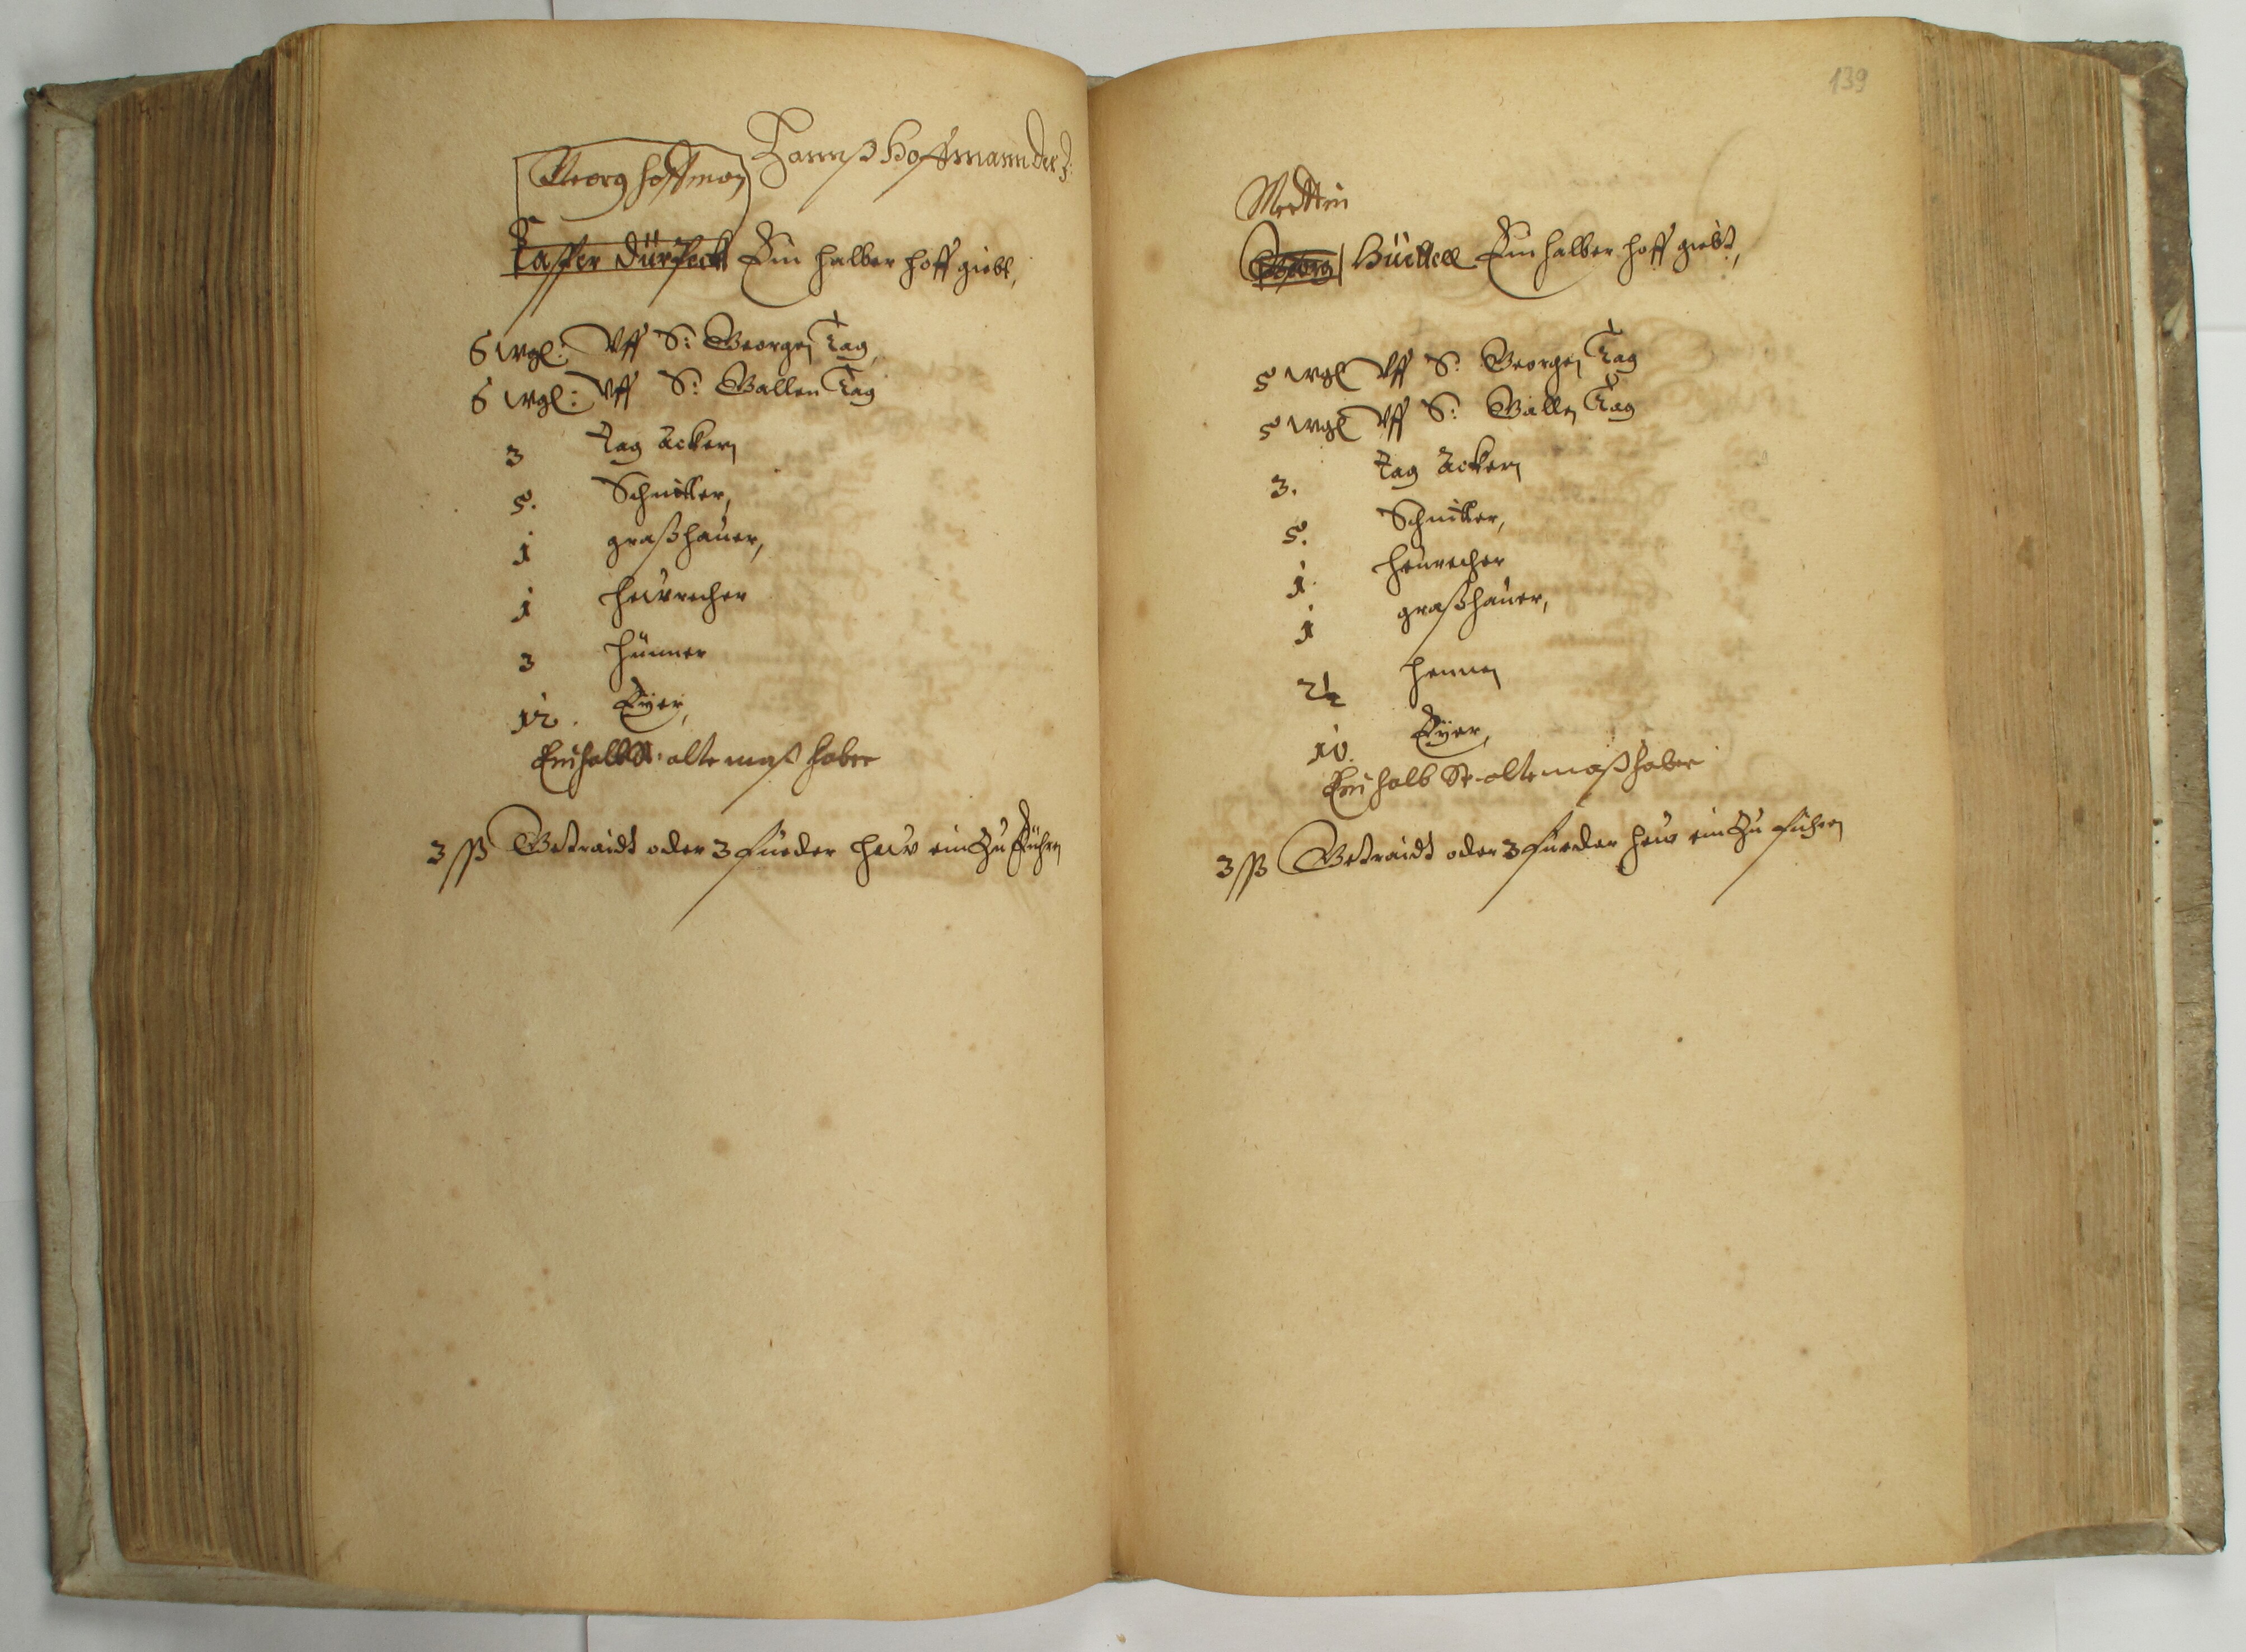 Hannß Hoffmann der J:
Georg Hoffman
Casper Dürbeck Ein halber hoff giebt,
6 wgl: Uff S: Georgen Tag,
6 wgl: Uff S: Gallen Tag
3 Tag Ackern
5. Schnitter,
1 graßhauer,
1 hewrecher
3 hünner
12. Eyer,
Ein halb St: alte maß haber
3 ß Getraidt oder 3 fueder hew ein Zu führen
139
Merttin
Georg Büttell Ein halber hoff giebt,
5 wgl Uff S: Georgen Tag
5 wgl Uff S: Gallen Tag
3. Tag Ackern
5. Schnitter,
1. heurecher
1 graßhauer,
2½ hennen
10. Eyer,
Ein halb St: alte maß haber
3 ß Getraidt oder 3 fueder hew ein Zu führen